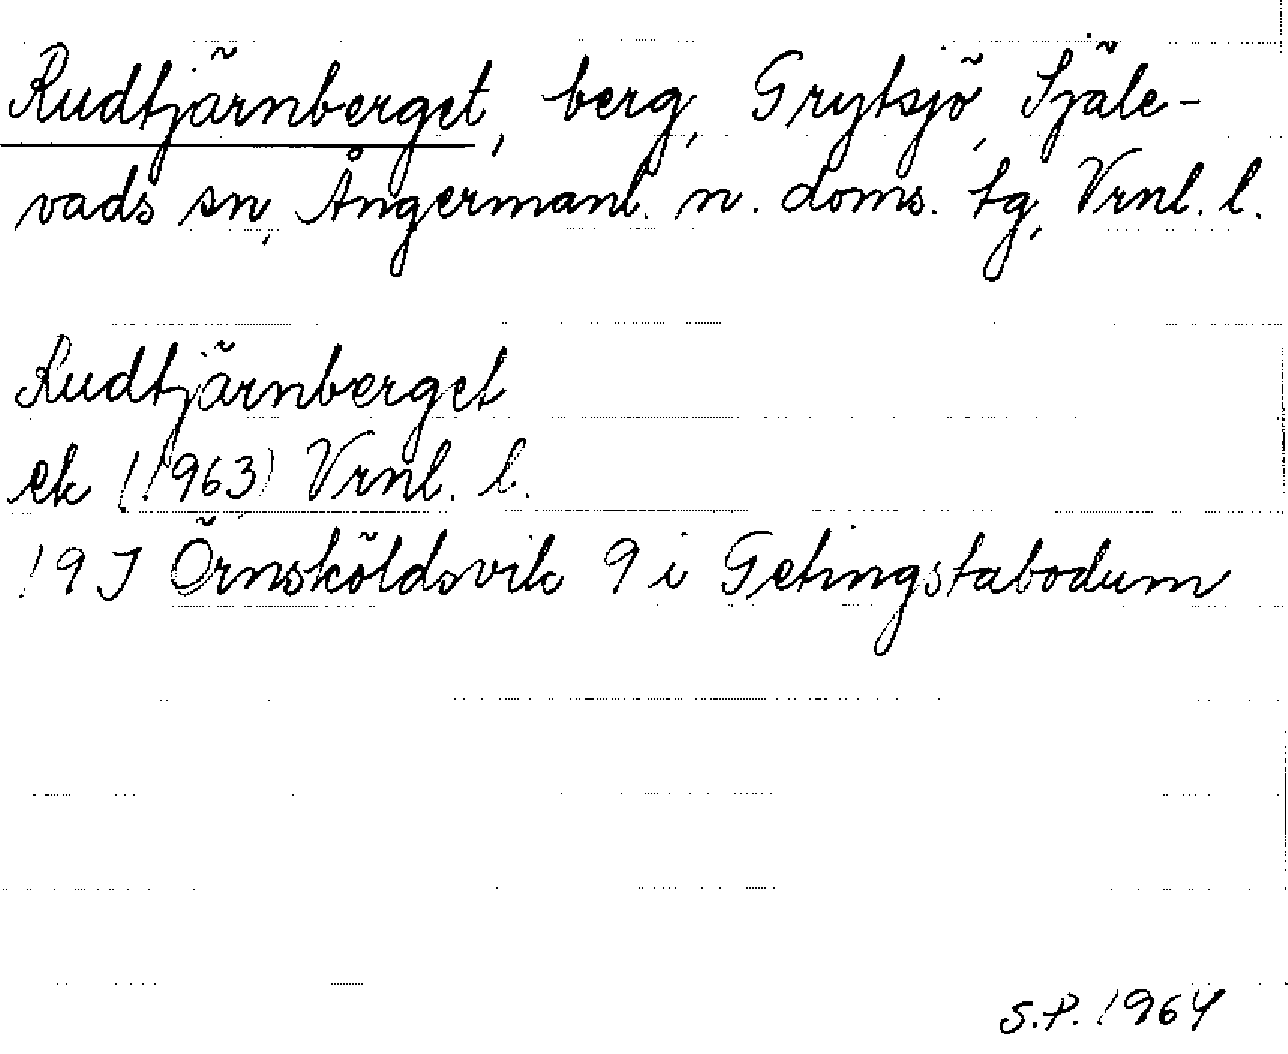 Rudtjärnberget, berg, Grytsjö, Själe-
vads sn, Ångermanl. n. doms. tg, Vrnl. l.
Rudtjärnberget
ek (1963) Vrnl. l.
19J Örnsköldsvik 9 i Getingstabodum
S.P. 1964